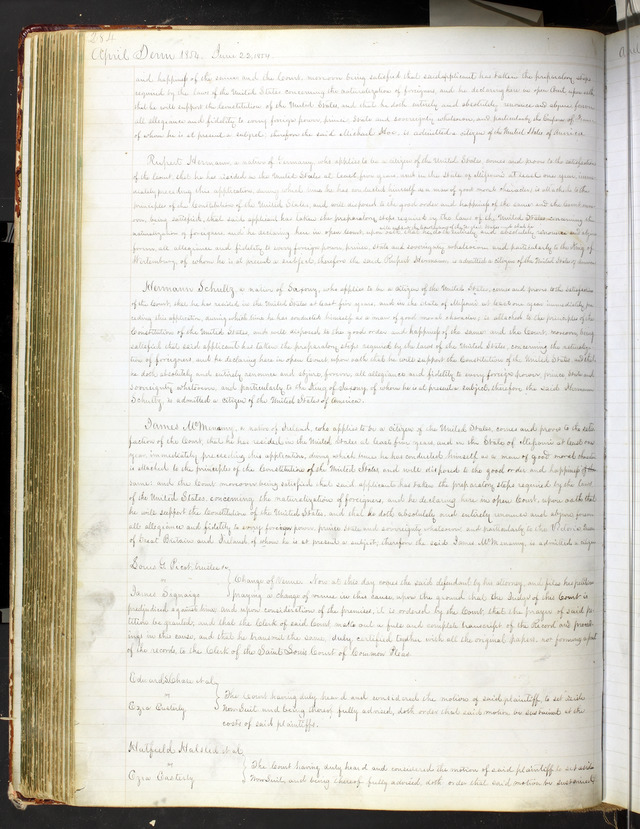 284
April Term 1854. June 23, 1854.
and happiness of the same and the Court, moreover being satisfied that said applicant has taken the preparatory steps
required by the laws of the United States concerning the naturalization of foreigners, and he declaring here in open Court upon oath
that he will support the Constitution of the United States, and that he doth entirely and absolutely renounce and abjure forever
all allegiance and fidelity to every foreign power, prince, State and sovereignty whatsoever, and particularly the
of whom he is at present a subject, therefore the said Michael is admitted a citizen of the United States of America.
Rupert Hermann, a native of Germany, who applies to be a citizen of the United States, comes and proves to the satisfaction
of the Court, that he has resided in the United States at least five years, and in the State of Missouri at least one year, imme-
diately preceding this application, during which time he has conducted himself as a man of good moral character, is attached to the
principles of the Constitution of the United States, and well disposed to the good order and happiness of the same and the Court more-
over, being satisfied, that said applicant has taken the preparatory steps required by the laws of the United States concerning the
naturalization of foreigners and he declaring here in open Court, upon oath
will support the Constitution of the United States and that he
doth entirely and absolutely renounce and abjure
forever, all allegiance and fidelity to every foreign power, prince, state and sovereignty whatsoever and particularly to the King of
Wurtemburg, of whom he is at present a subject, therefore the said Rupert Hermann is admitted a citizen of the United States of America
Hermann Schultz a native of Saxony, who applies to be a citizen of the United States, comes and proves to the satisfaction
of the Court, that he has resided in the United States at least five years, and in the state of Missouri at least one year immediately pre-
ceding this application, during which time he has conducted himself as a man of good moral character, is attached to the principles of the
Constitution of the United States, and well disposed to the good order and happiness of the same and the Court, moreover, being
satisfied that said applicant has taken the preparatory steps required by the laws of the United States, concerning the naturaliza-
tion of foreigners, and he declaring here in open Court upon oath that he will support the Constitution of the United States and that
he doth absolutely and entirely renounce and abjure, forever, all allegiance and fidelity to every foreign power, prince, state and
sovereignty whatsoever, and particularly to the King of Saxony of whom he is at present a subject, therefore, the said Hermann
Schultz is admitted a citizen of the United States of America.
James McMenamy, a native of Ireland, who applies to be a citizen of the United States, comes and proves to the satis-
faction of the Court, that he has resided in the United States at least five years, and in the State of Missouri at least one
year immediately preceding this application, during which time he has conducted himself as a man of good moral character
is attached to the principles of the Constitution of the United States and well disposed to the good order and happiness of the
same, and the Court moreover being satisfied that said applicant has taken the preparatory steps required by the laws
of the United States, concerning the naturalization of foreigners, and he declaring here in open Court, upon oath that
he will support the Constitution of the United States, and that he doth absolutely and entirely renounce and abjure forever
all allegiance and fidelity to every foreign power, prince, state and sovereignty whatsoever and particularly to the Victoria Queen
of Great Britain and Ireland of whom he is at present a subject, therefore the said James McMenamy, is admitted a citizen
Louis G. Picot, trustee,
vs
James
Change of Venue. Now at this day comes the said defendant by his attorney, and files his petition
praying a change of venue in this cause, upon the ground that the Judge of this Court is
prejudiced against him, and upon consideration of the premises, it is ordered by the Court, that the prayer of said pe-
tition be granted, and that the Clerk of said Court make out a full and complete transcript of the Record and proceed-
ings in this cause, and that he transmit the same, duly certified together with all the original papers, not forming a part
of the record, to the Clerk of the Saint Louis Court of Common Pleas.
Edward Chase et al,
vs
Ezra Casterly
The Court having duly heard and considered the motion of said plaintiffs, to set aside
Non Suit and being thereof fully advised, doth order that said motion be sustained at the
costs of said plaintiffs.
Hatfield Halsted et al,
vs
Ezra Casterly
The Court having duly heard and considered the motion of said plaintiffs to set aside
Non Suit, and being thereof fully advised, doth order that said motion be sustained